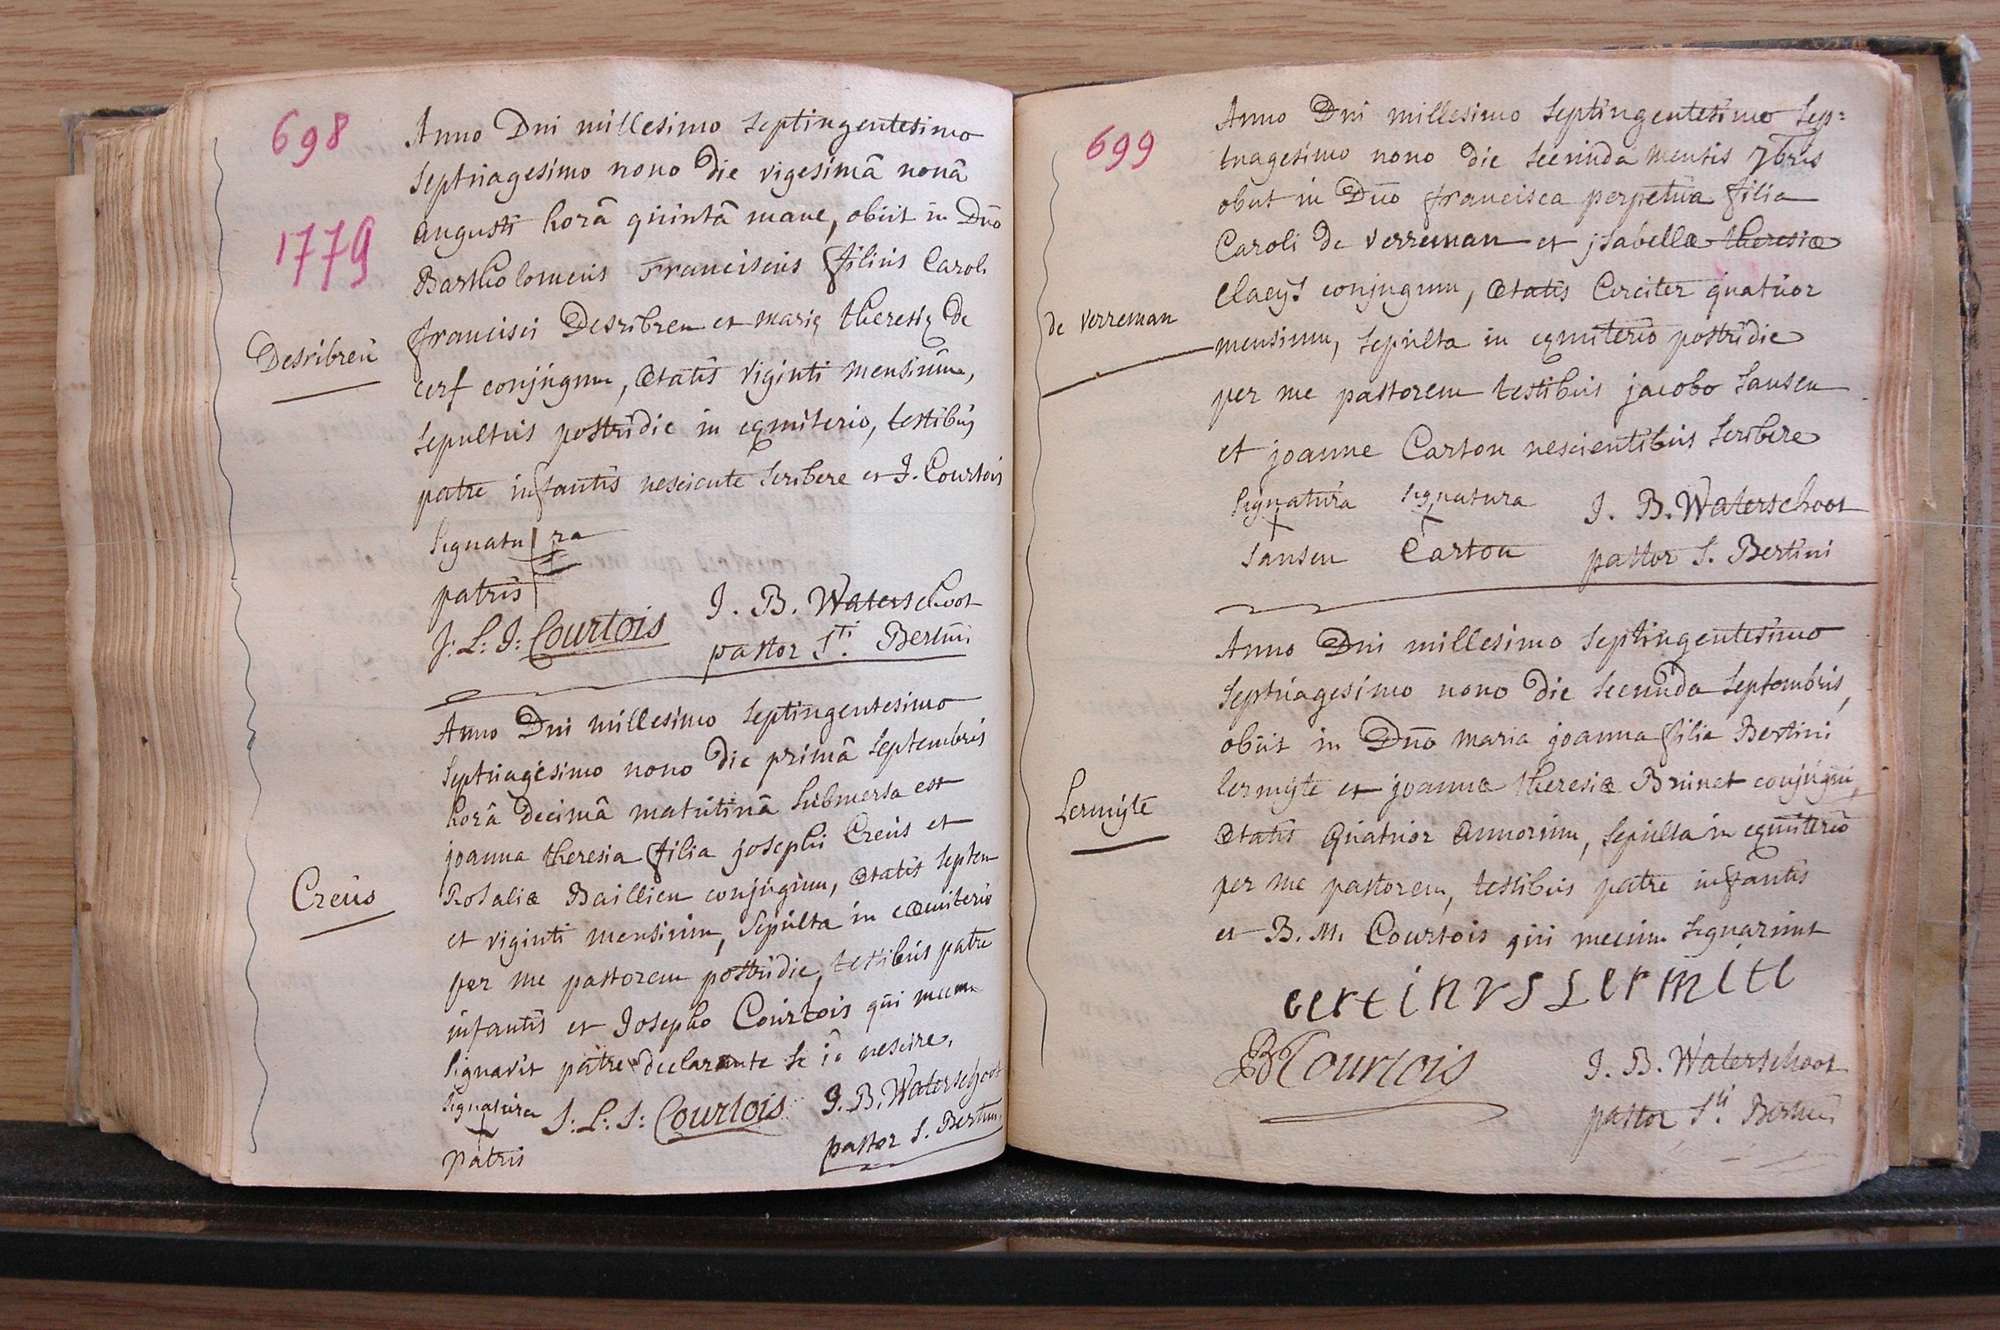 698
1779
Anno Dni millesimo septingentesimo
septuagesimo nono die vigesimâ nonâ
augusti horâ quintâ mane, obiit in Dno
Bartholomeus Franciscus filius Caroli
francisci Desribreu et marię theresię de
cerf conjugum, ætatis viginti mensium,
sepultus postridie in cęmiterio, testibus
patre infantis nesciente scribere et J. Courtois
Desribreu
signatura
patris
J: L: J: Courtois
J. B. Waterschoot
pastor Sti Bertini
Anno Dni millesimo septingentesimo
septuagesimo nono die primâ septembris
horâ decimâ matutinâ submersa est
joanna theresia filia josephi Creus et
Rosaliæ Baillieu conjugum, ætatis septem
et viginti mensium, sepulta in cœmiterio
per me pastorem postridie, testibus patre
infantis et Josepho Courtois qui mecum
signavit patre declarante se id nescire.
Creus
signatura
patris
J: L: J: Courtois
J. B. Waterschoot
pastor S. Bertini
699
Anno Dni millesimo septingentesimo sep=
tuagesimo nono die secunda mensis 7bris
obiit in Dno francisca perpetua filia
Caroli de verreman et jsabellæ theresiæ
Claeijs conjugum, ætatis circiter quatuor
mensium, sepulta in cęmiterio postridie
per me pastorem testibus jacobo Jansen
et joanne Carton nescientibus scribere
de verreman
signatura signatura
Jansen Carton
J. B. Waterschoot
pastor S. Bertini
Anno Dni millesimo septingentesimo
septuagesimo nono die secunda septembris,
obiit in Dno maria joanna filia Bertini
lermijte et joannæ theresiæ Brunet conjugum,
ætatis quatuor annorum, sepulta in cęmiterio
per me pastorem, testibus patre infantis
et B. M. Courtois qui mecum signarunt
Lermijte
bertinus Lermite
BM Courtois
J. B. Waterschoot
pastor Sti Bertini